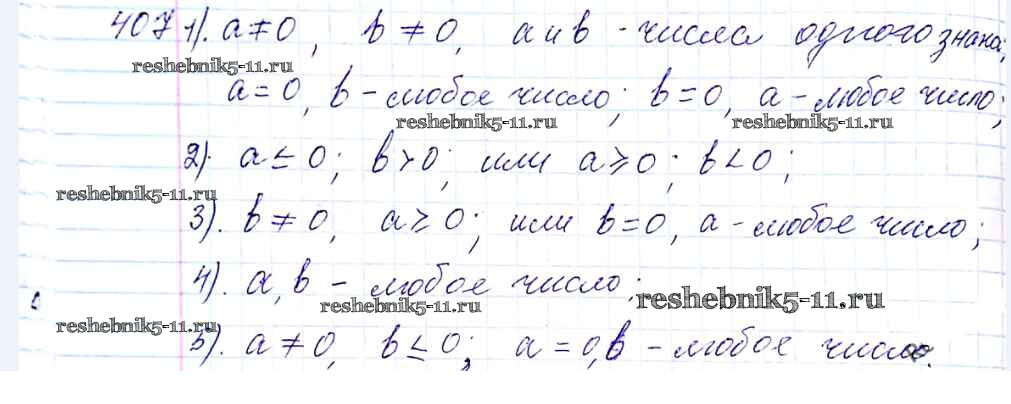 407 1). a ≠ 0, b ≠ 0, a и b - числа одного знака;
reshebnik5-11.ru
a = 0, b - любое число; b = 0, a - любое число;
reshebnik5-11.ru reshebnik5-11.ru
2). a ≤ 0; b > 0; или a ≥ 0; b < 0;
reshebnik5-11.ru
3). b ≠ 0, a ≥ 0; или b = 0, a - любое число;
4). a, b - любое число;
reshebnik5-11.ru reshebnik5-11.ru
reshebnik5-11.ru
5). a ≠ 0, b ≤ 0; a = 0, b - любое число.